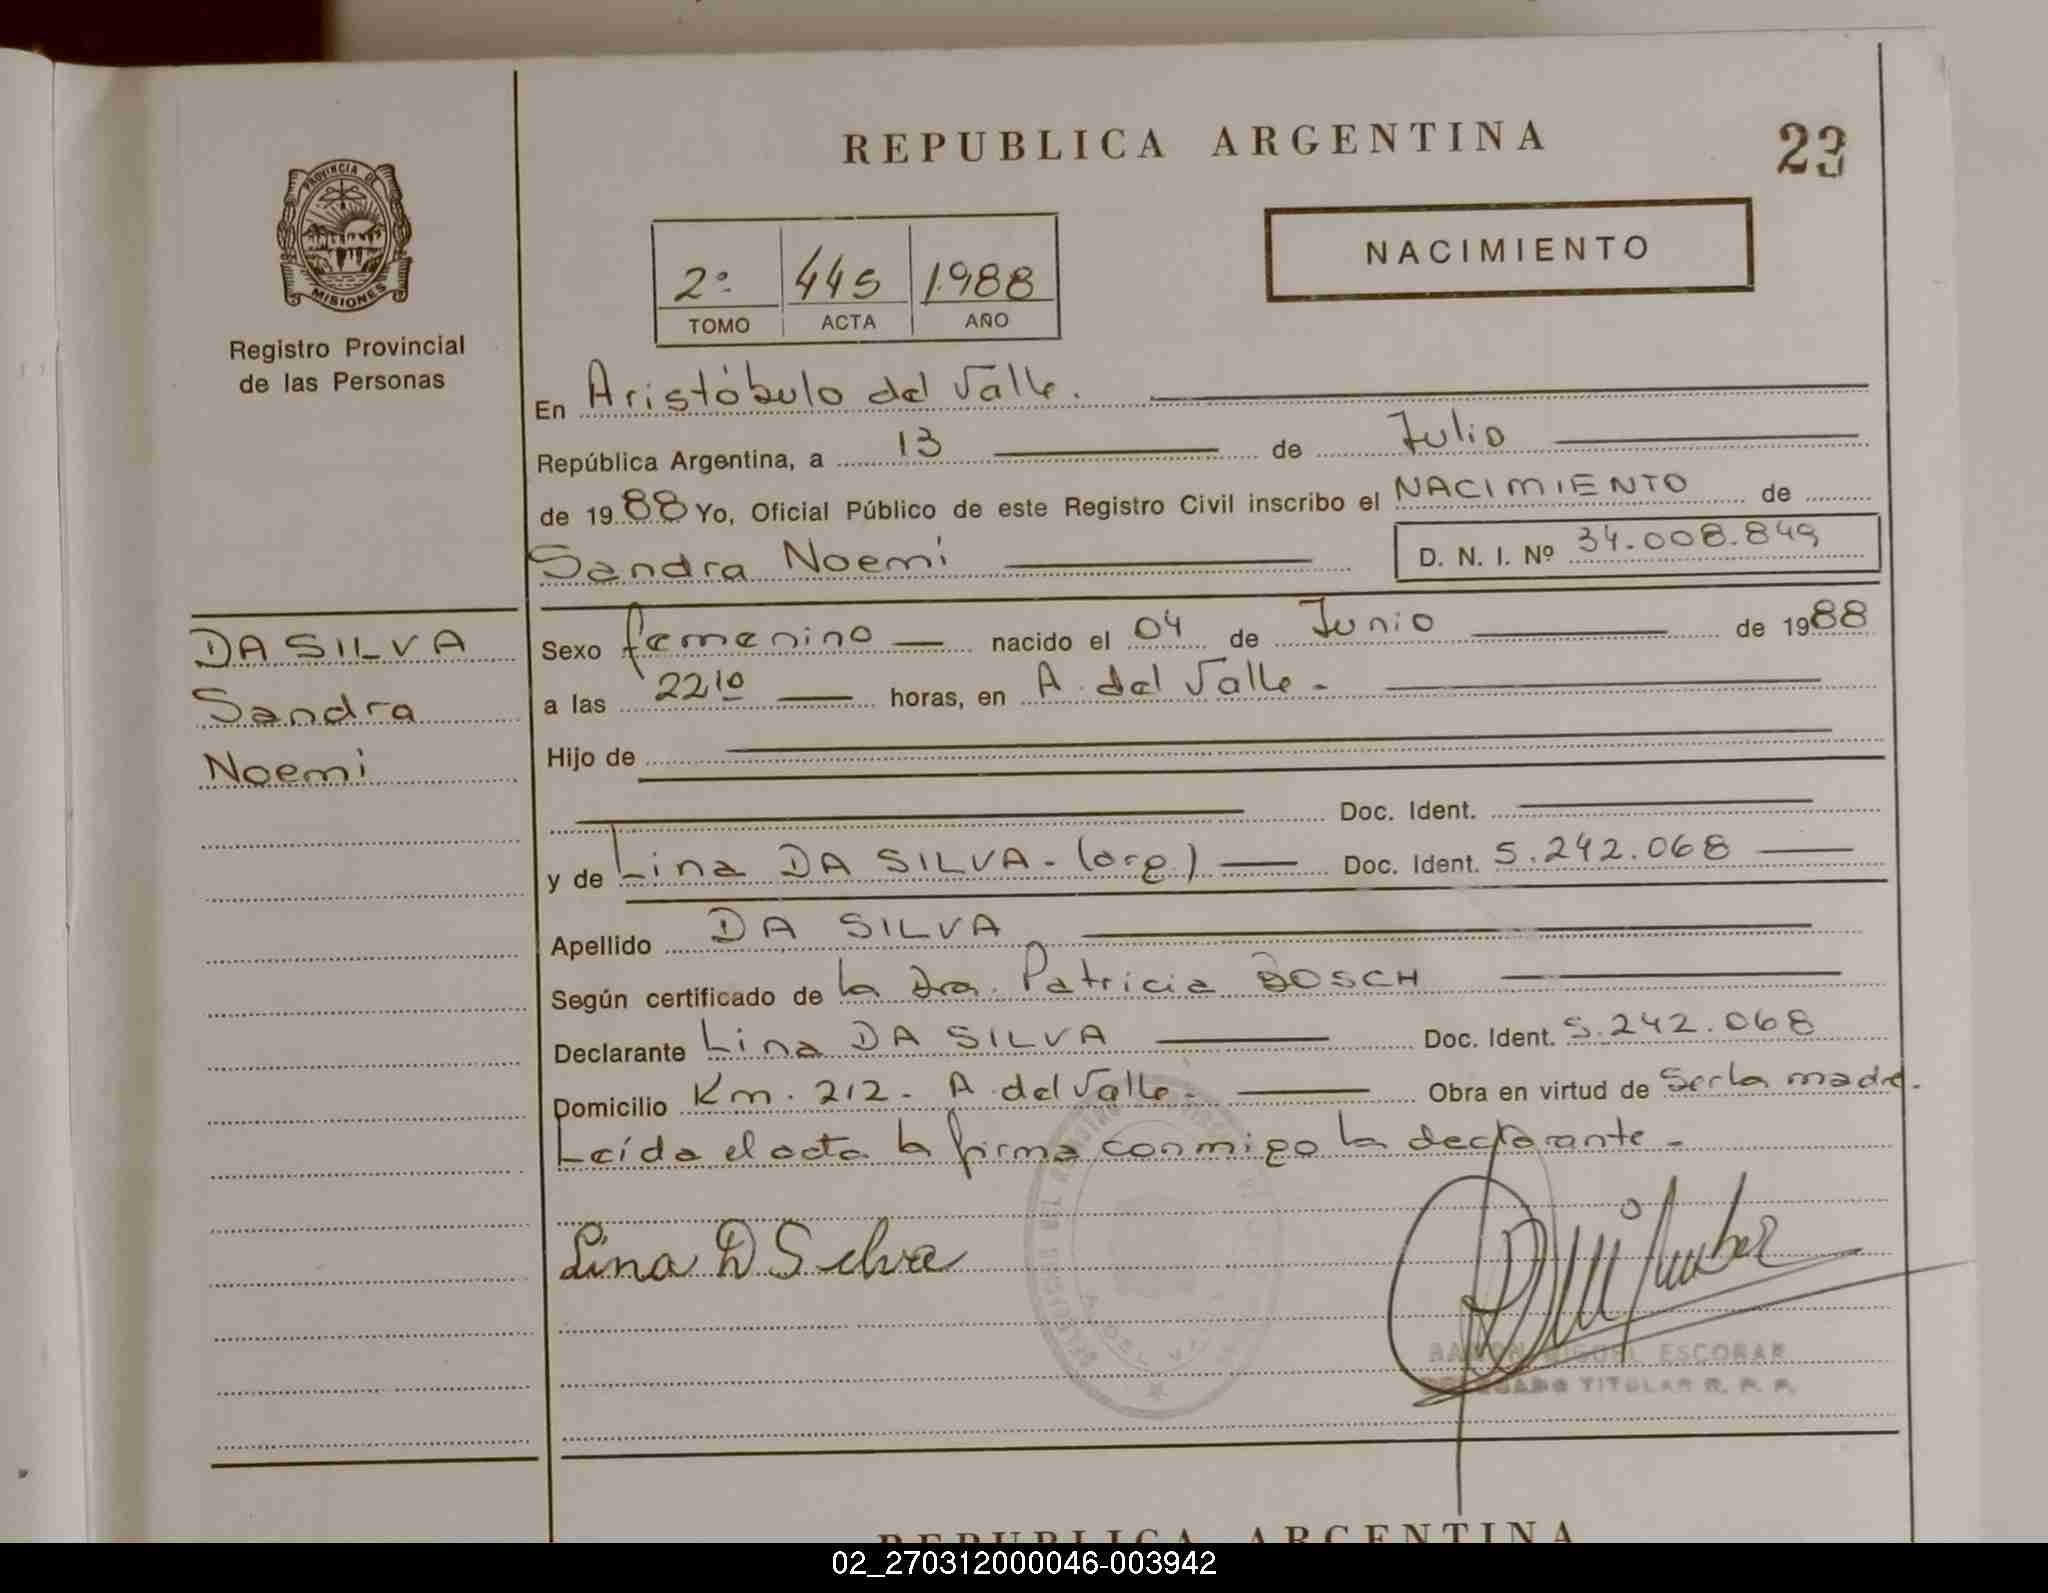 REPUBLICA ARGENTINA
23
PROVINCIA DE
MISIONES
Registro Provincial
de las Personas
2º 445 1988
TOMO ACTA AÑO
NACIMIENTO
En Aristóbulo del Valle.
República Argentina, a 13 de Julio
de 1988 Yo, Oficial Público de este Registro Civil inscribo el NACIMIENTO de
Sandra Noemi D. N. I. Nº 34.008.849
DA SILVA
Sandra
Noemi
Sexo femenino nacido el 04 de Junio de 1988
a las 22 10 horas, en A. del Valle -
Hijo de
Doc. Ident.
y de Lina DA SILVA - (arg.) Doc. Ident. 5.242.068
Apellido DA SILVA
Según certificado de la Dra. Patricia BOSCH
Declarante Lina DA SILVA Doc. Ident. 5.242.068
Domicilio Km. 212 - A. del Valle - Obra en virtud de Ser la madre.
Leída el acta la firma conmigo la declarante -
Lina D Silva
RAMON MIGUEL ESCOBAR
DELEGADO TITULAR R. P. P.
REPUBLICA ARGENTINA
02_270312000046-003942